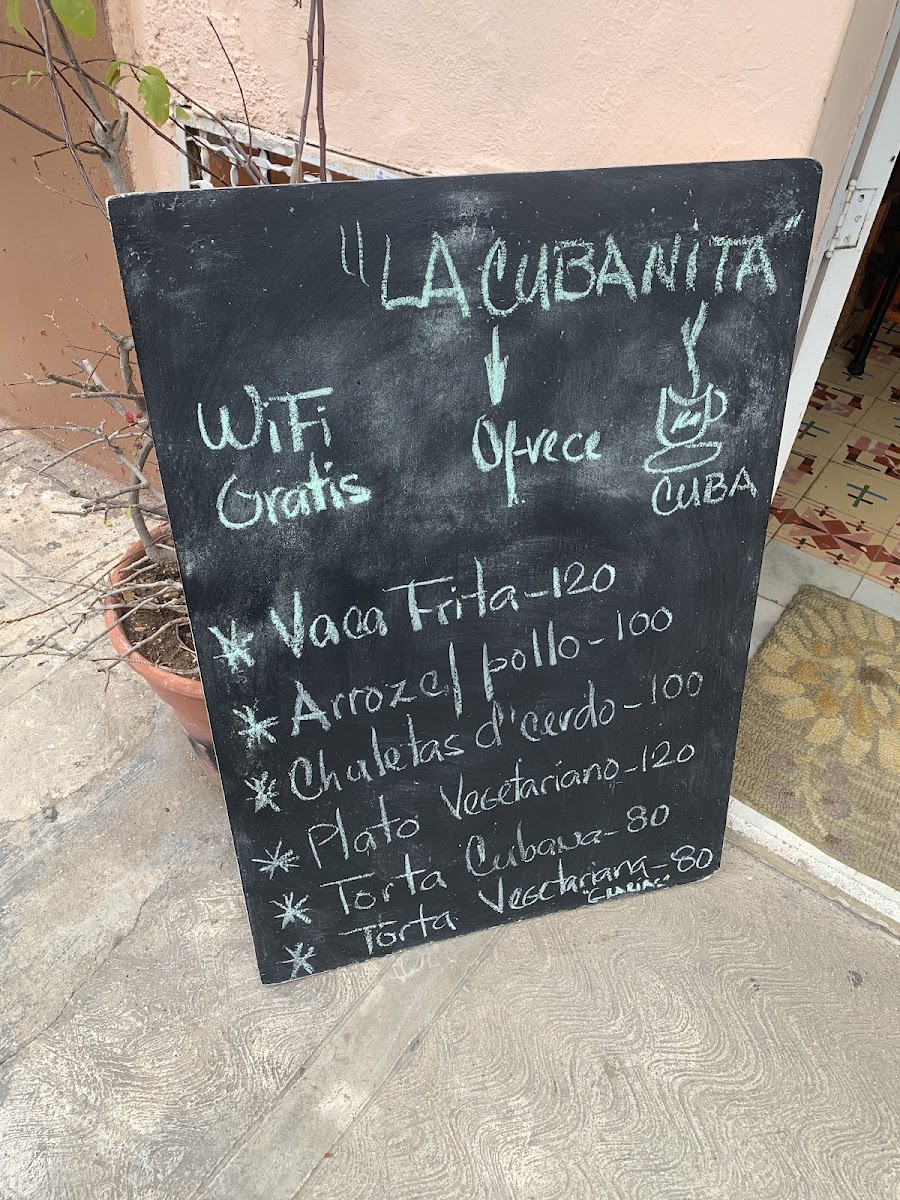 "LA CUBANITA"
WiFi
Gratis
Ofrece
CUBA
* Vaca Frita-120
* Arroz c/ pollo-100
* Chuletas d'cerdo-100
* Plato Vegetariano-120
* Torta Cubana-80
* Torta Vegetariana-80
"GRACIAS"